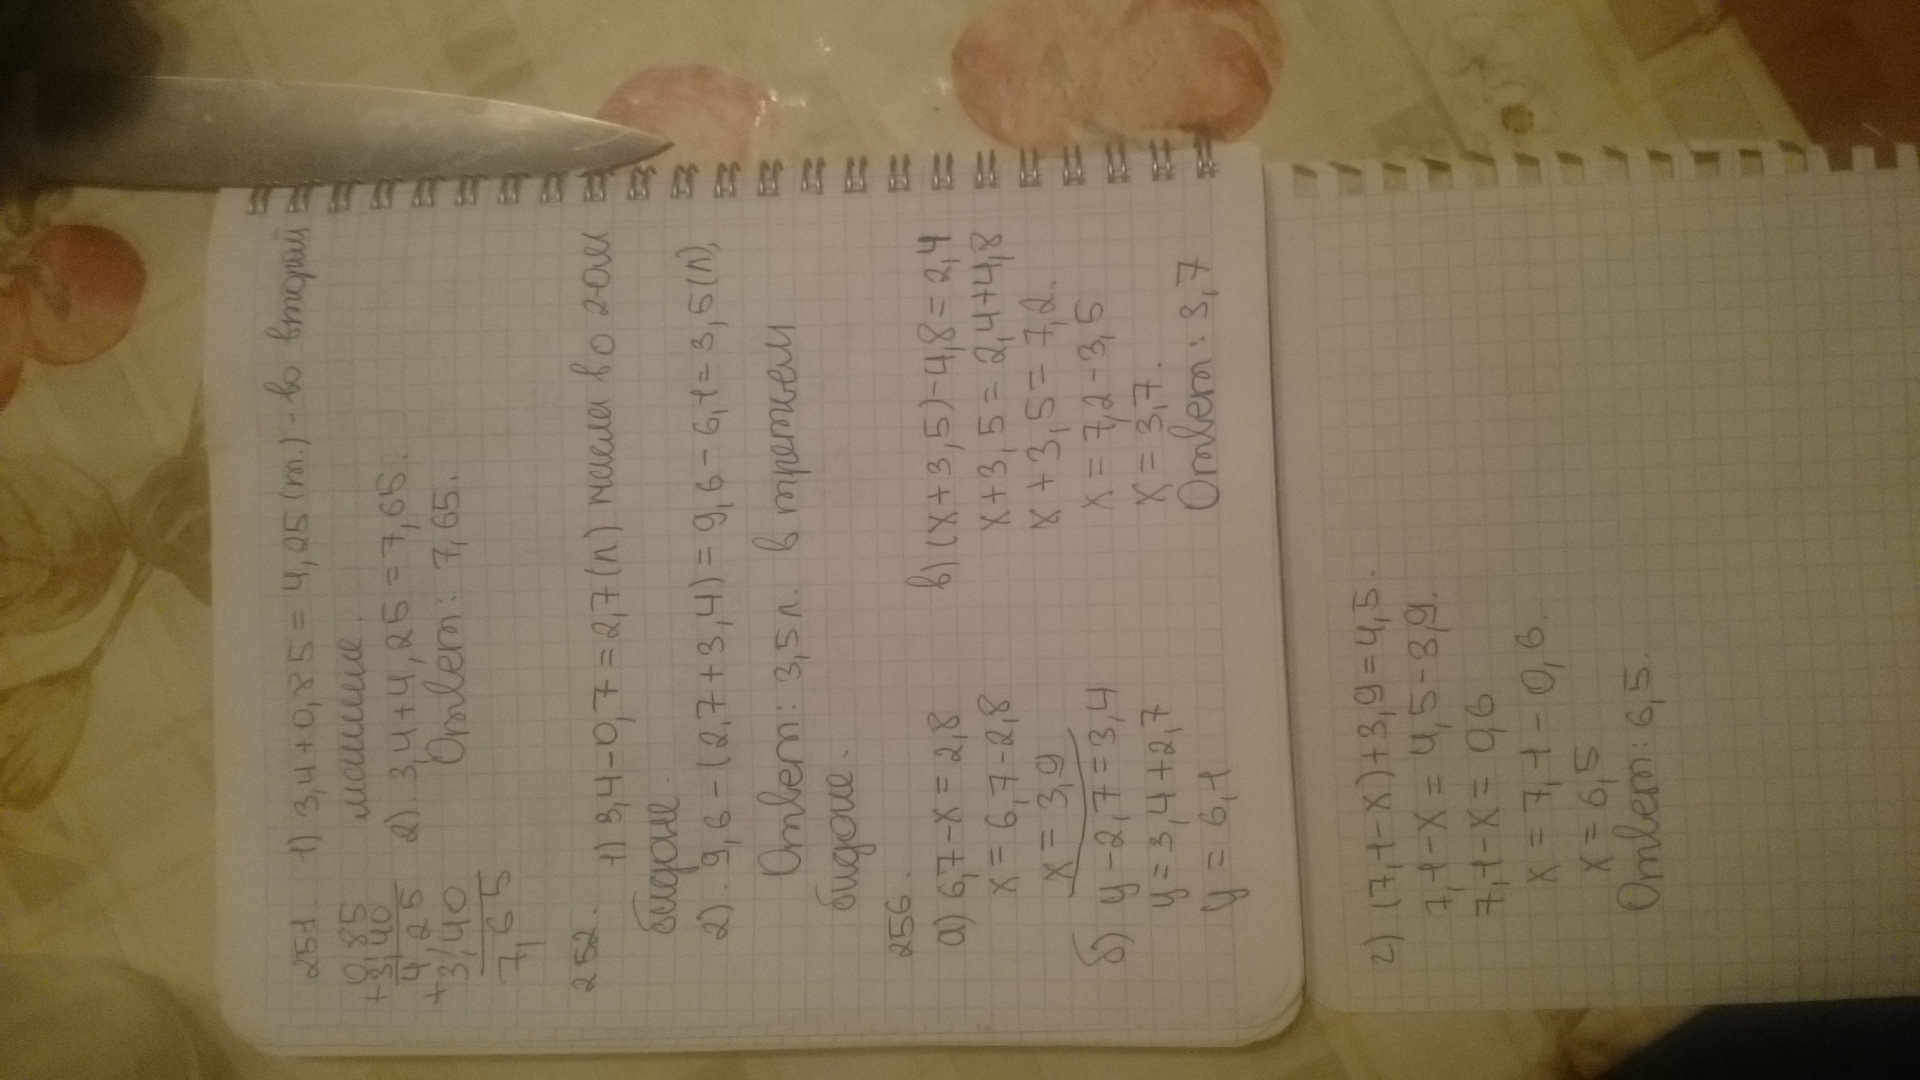 251. 1) 3,4+0,85=4,25(т.)-во второй
машине.
0,85
+3,40
4,25
+3,40
7,65
2). 3,4+4,25=7,65.
Ответ: 7,65.
252.
1) 3,4-0,7=2,7(л) масла во 2-ом
бидоне.
2). 9,6-(2,7+3,4)=9,6-6,1=3,5(л),
Ответ: 3,5 л. в третьем
бидоне.
256.
а) 6,7-x=2,8
x=6,7-2,8
x=3,9
б) y-2,7=3,4
y=3,4+2,7
y=6,1
в) (x+3,5)-4,8=2,4
x+3,5=2,4+4,8
x+3,5=7,2.
x=7,2-3,5
x=3,7.
Ответ: 3,7
г) (7,1-x)+3,9=4,5.
7,1-x=4,5-3,9.
7,1-x=0,6
x=7,1-0,6.
x=6,5
Ответ: 6,5.